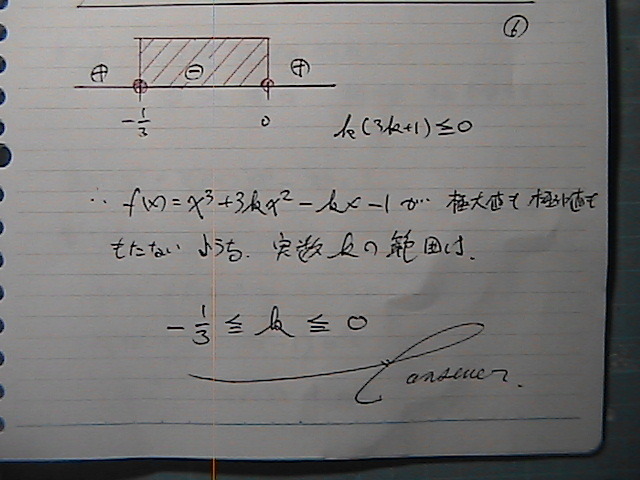 ⑥
⊕ ⊖ ⊕
-1/3 0
k(3k+1)≦0
∴ f(x)=x³+3kx²-kx-1が 極大値も極小値も
もたないような 実数kの範囲は、
-1/3 ≦ k ≦ 0
answer.